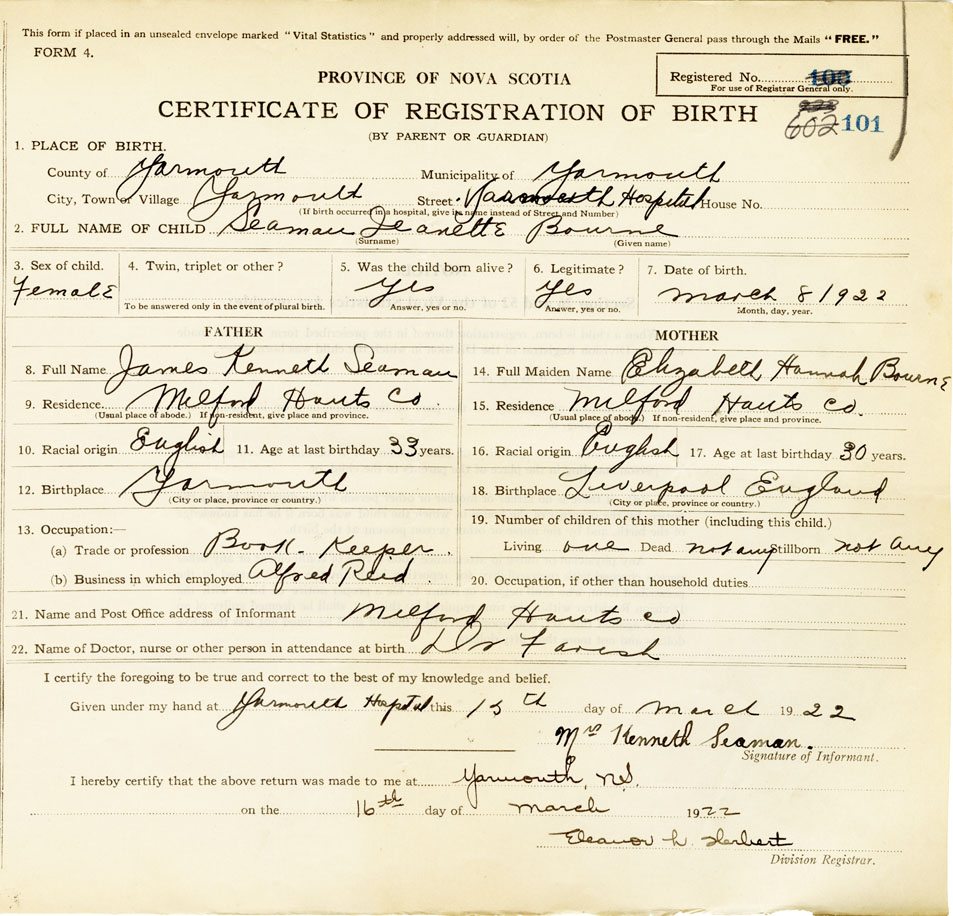 This form if placed in an unsealed envelope marked "Vital Statistics" and properly addressed will, by order of the Postmaster General pass through the Mails "FREE."
FORM 4.
PROVINCE OF NOVA SCOTIA
Registered No.
For use of Registrar General only.
CERTIFICATE OF REGISTRATION OF BIRTH
602 101
(BY PARENT OR GUARDIAN)
1. PLACE OF BIRTH.
County of Yarmouth Municipality of Yarmouth
City, Town or Village Yarmouth Street Yarmouth Hospital House No.
(If birth occurred in a hospital, give its name instead of Street and Number)
2. FULL NAME OF CHILD Seaman Jeanette Bourne
(Surname) (Given name)
3. Sex of child. 4. Twin, triplet or other? 5. Was the child born alive? 6. Legitimate? 7. Date of birth.
Female Yes Yes March 8 1922
To be answered only in the event of plural birth. Answer, yes or no. Answer, yes or no. Month, day, year.
FATHER MOTHER
8. Full Name James Kenneth Seaman 14. Full Maiden Name Elizabeth Hannah Bourne
9. Residence Milford Hants Co. 15. Residence Milford Hants co.
(Usual place of abode.) If non-resident, give place and province. (Usual place of abode.) If non-resident, give place and province.
10. Racial origin English 11. Age at last birthday 33 years. 16. Racial origin English 17. Age at last birthday 30 years.
12. Birthplace Yarmouth 18. Birthplace Liverpool England
(City or place, province or country.) (City or place, province or country.)
13. Occupation:— 19. Number of children of this mother (including this child.)
(a) Trade or profession Book-Keeper. Living one Dead not any Stillborn not any
(b) Business in which employed Alfred Reid. 20. Occupation, if other than household duties
21. Name and Post Office address of Informant Milford Hants co
22. Name of Doctor, nurse or other person in attendance at birth Dr Farish
I certify the foregoing to be true and correct to the best of my knowledge and belief.
Given under my hand at Yarmouth Hospital this 15th day of March 1922
Mrs Kenneth Seaman.
Signature of Informant.
I hereby certify that the above return was made to me at Yarmouth, N.S.
on the 16th day of March 1922
Eleanor L. Herbert
Division Registrar.